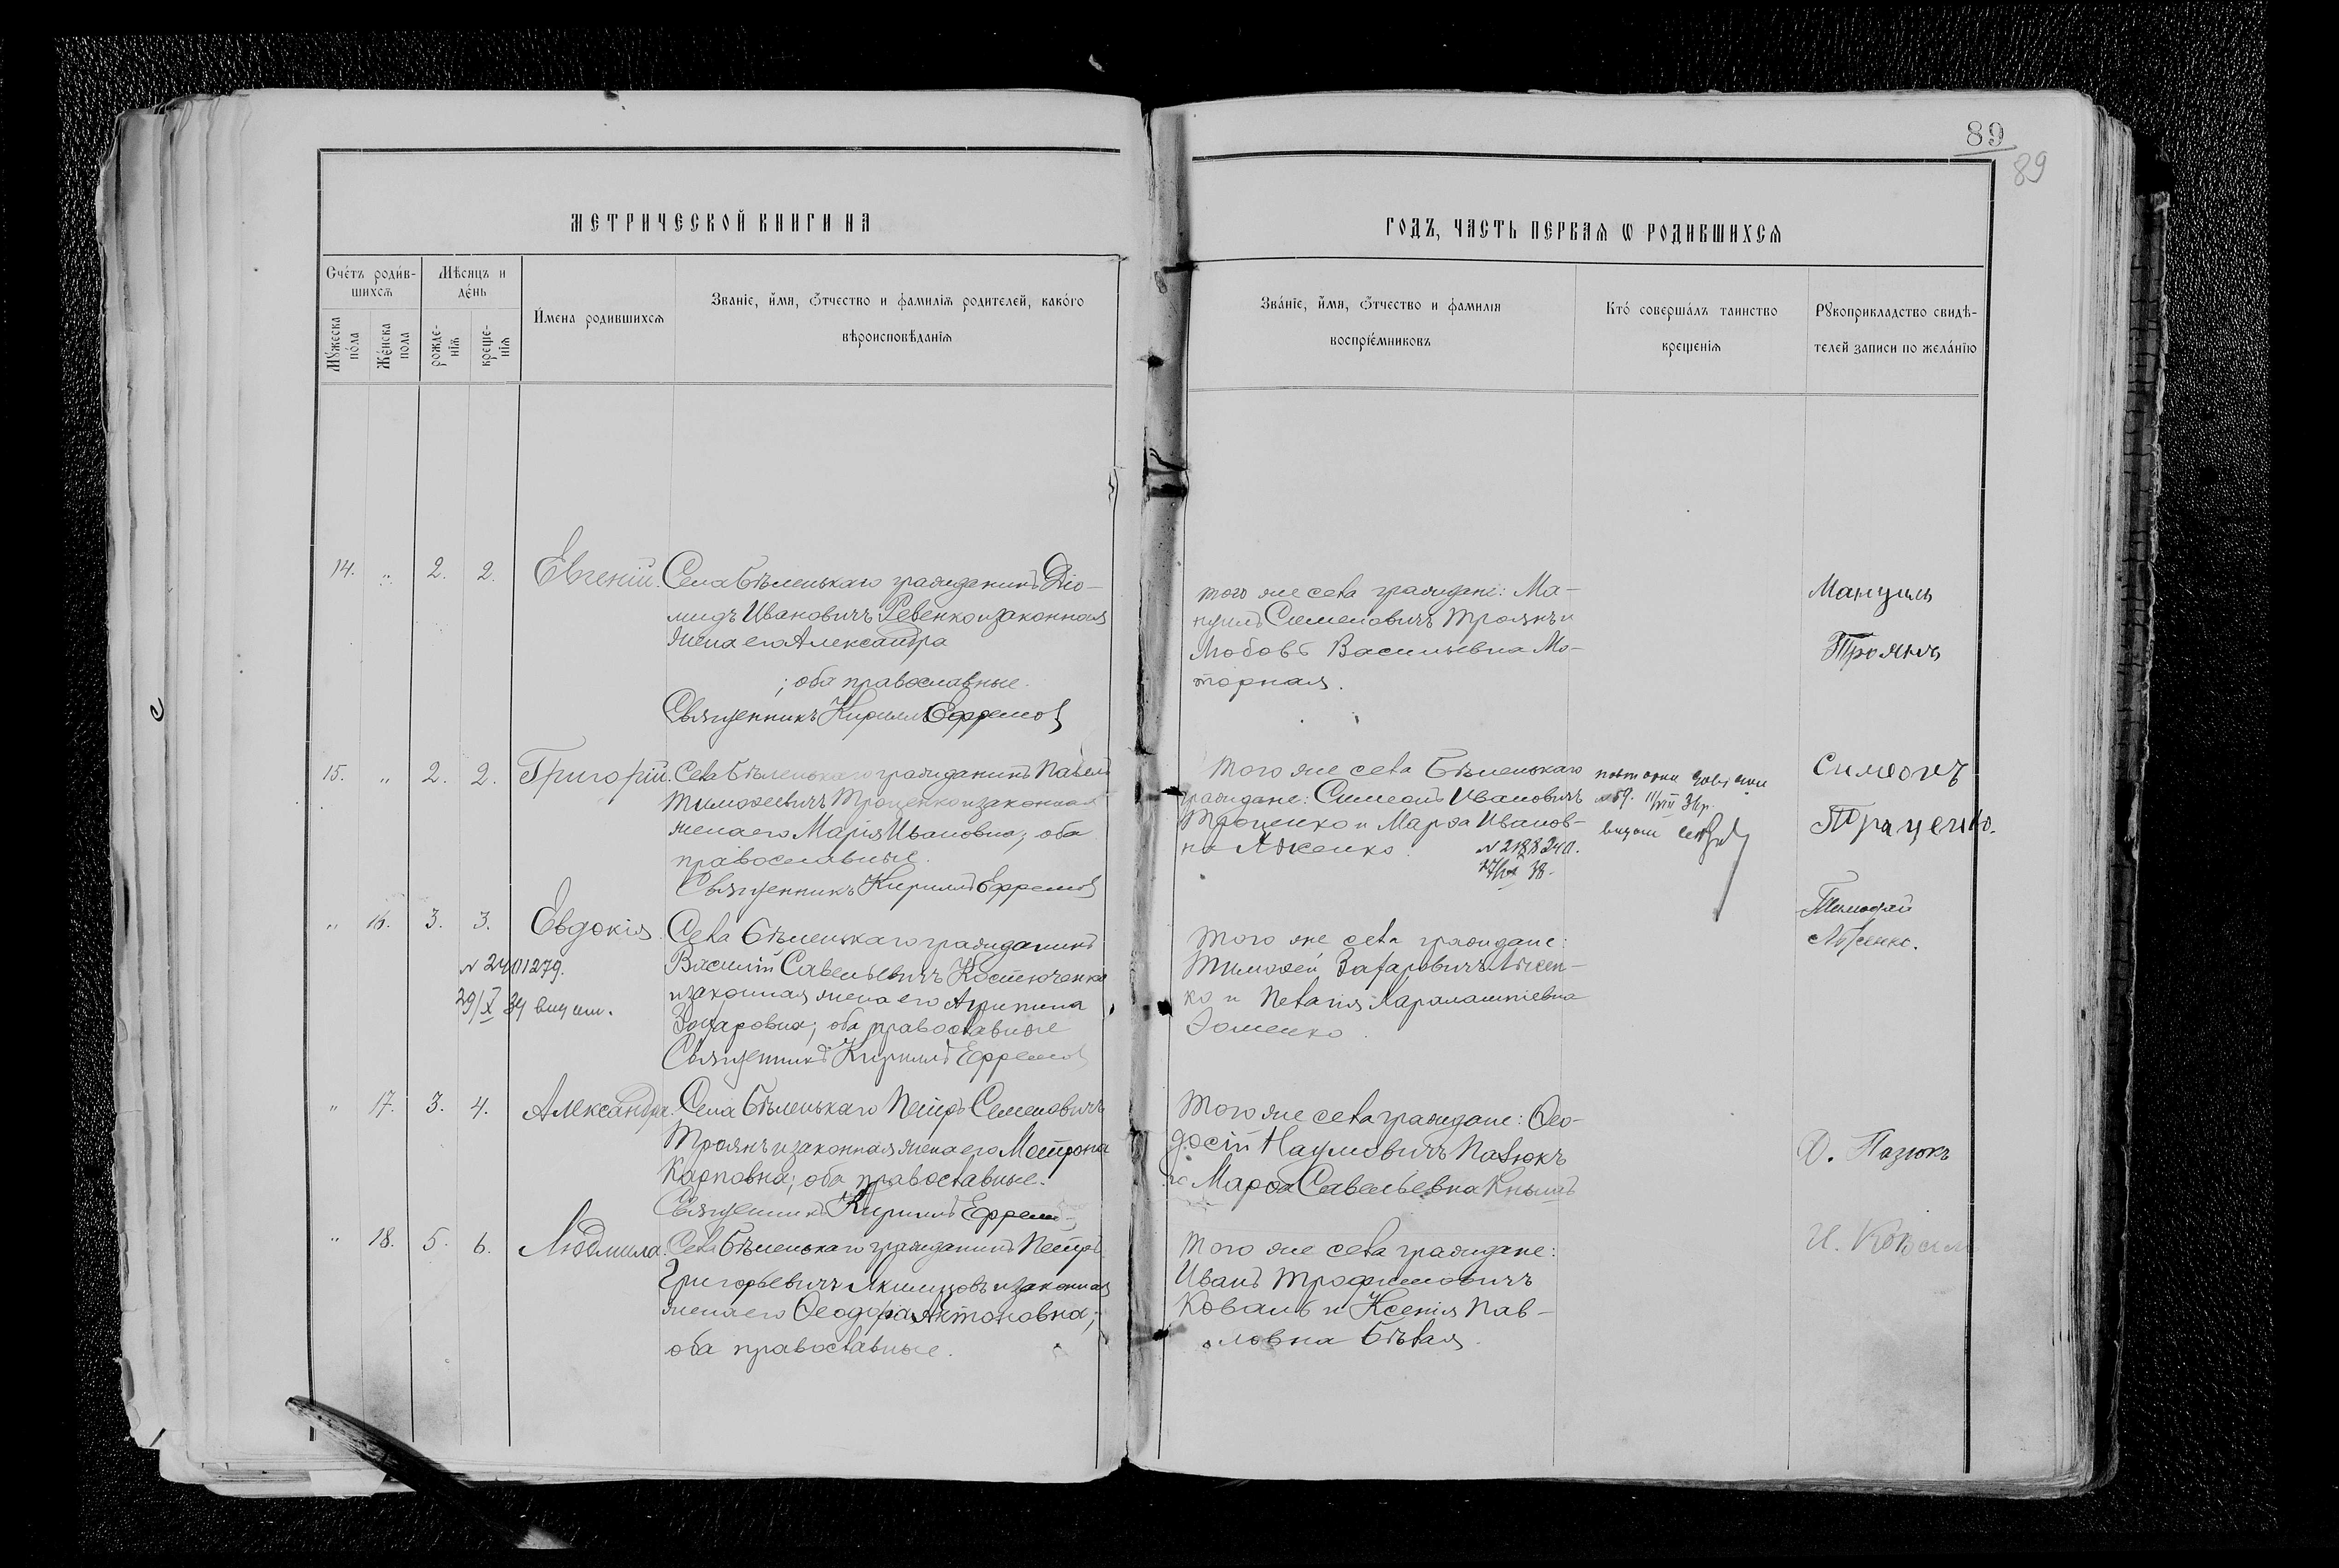 89
89
МЕТРИЧЕСКОЙ КНИГИ НА
ГОДЪ, ЧАСТЬ ПЕРВАЯ Ѡ РОДИВШИХСЯ
Счéтъ роди́в-
шихсѧ
Мѣсяцъ и
дéнь
Мꙋжеска
пóла
Жéнска
пола
рожде-
нїѧ
креще-
нїѧ
И҆мена родившихсѧ
Званїе, и҆мя, ѻтчество и фамилїѧ родителей, какóго
вѣроисповѣданїѧ
Звáнїе, и҆мя, ѻтчество и фамилїя
воспрїéмниковъ
Ктó совершáлъ таинство
крещенїя
Рꙋкоприкладство свидѣ-
телей записи по желáнїю
14. „ 2. 2. Евгеній. Села Бѣленькаго гражданинъ Діо-
мидъ Ивановичъ Ревенко и законная
жена его Александра
; оба православные.
Священникъ Кириллъ Ефремов
того же села граждане: Ма-
нуилъ Семеновичъ Троянъ и
Любовь Васильевна Мо-
торная.
Мануилъ
Троянъ
15. „ 2. 2. Григорій. Села Бѣленькаго гражданинъ Павелъ
Тимофеевичъ Троценко и законная
жена его Марія Ивановна; оба
православные.
Священникъ Кириллъ Ефремов
Того же села Бѣленькаго
граждане: Симеонъ Ивановичъ
Троценко и Марфа Иванов-
на Лысенко. N 2188240.
38.
N 59. 11/VIII
Симеонъ
Троценко.
„ 16. 3. 3. Евдокія. Села Бѣленькаго гражданинъ
Василій Савельевичъ Костюченко
и законная жена его Агрипина
Захаровна; оба православные
Священникъ Кириллъ Ефремов
N 2401279.
29/X 39
Того же села граждане:
Тимофей Захаровичъ Лысен-
ко и Пелагія Харлампіевна
Фоменко.
Тимофей
Лысенко.
„ 17. 3. 4. Александра. Села Бѣленькаго Петръ Семеновичъ
Троянъ и законная жена его Матрона
Карповна; оба православные.
Священникъ Кириллъ Ефрем
Того же села граждане: Ѳео-
досій Наумовичъ Пазюкъ
и Марфа Савельевна Кнышъ
Ѳ. Пазюкъ
„ 18. 5. 6. Людмила. Села Бѣленькаго гражданинъ Петръ
Григорьевичъ Якимцовъ и законная
жена его Ѳеодора Антоновна;
оба православные.
Того же села граждане:
Иванъ Трофимовичъ
Коваль и Ксенія Пав-
ловна Бѣлая.
И. Коваль